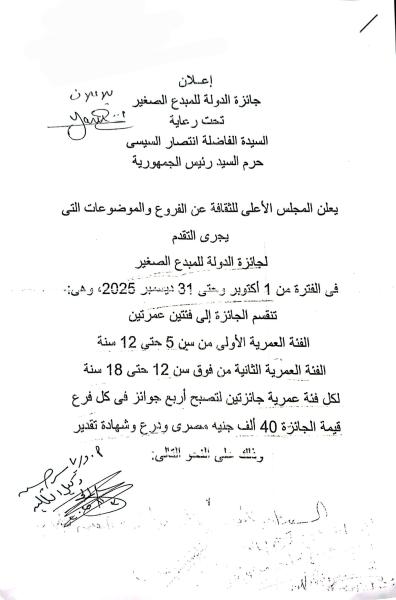 إعـلان
للإعلان
جائزة الدولة للمبدع الصغير
تحت رعاية
السيدة الفاضلة انتصار السيسى
حرم السيد رئيس الجمهورية
يعلن المجلس الأعلى للثقافة عن الفروع والموضوعات التى
يجرى التقدم
لجائزة الدولة للمبدع الصغير
فى الفترة من 1 أكتوبر وحتى 31 ديسمبر 2025، وهى:-
تنقسم الجائزة إلى فئتين عمرتين
الفئة العمرية الأولى من سن 5 حتي 12 سنة
الفئة العمرية الثانية من فوق سن 12 حتى 18 سنة
لكل فئة عمرية جائزتين لتصبح أربع جوائز فى كل فرع
قيمة الجائزة 40 ألف جنيه مصرى ودرع وشهادة تقدير
وذلك على النحو التالى:
وكيل الكلية